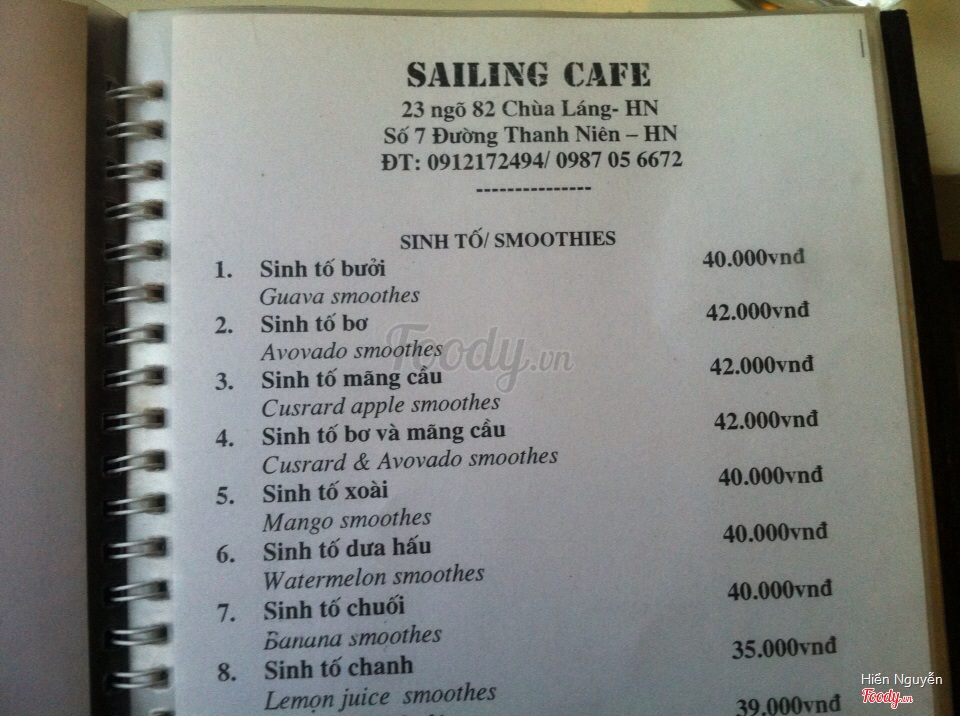 SAILING CAFE
23 ngõ 82 Chùa Láng- HN
Số 7 Đường Thanh Niên – HN
ĐT: 0912172494/ 0987 05 6672
---------------
SINH TỐ/ SMOOTHIES
1. Sinh tố bưởi 40.000vnđ
Guava smoothes
2. Sinh tố bơ 42.000vnđ
Avovado smoothes
3. Sinh tố mãng cầu 42.000vnđ
Cusrard apple smoothes
4. Sinh tố bơ và mãng cầu 42.000vnđ
Cusrard & Avovado smoothes
5. Sinh tố xoài 40.000vnđ
Mango smoothes
6. Sinh tố dưa hấu 40.000vnđ
Watermelon smoothes
7. Sinh tố chuối 40.000vnđ
Banana smoothes
8. Sinh tố chanh 35.000vnđ
Lemon juice smoothes
39.000vnđ
Foody.vn
Hiền Nguyễn
Foody.vn